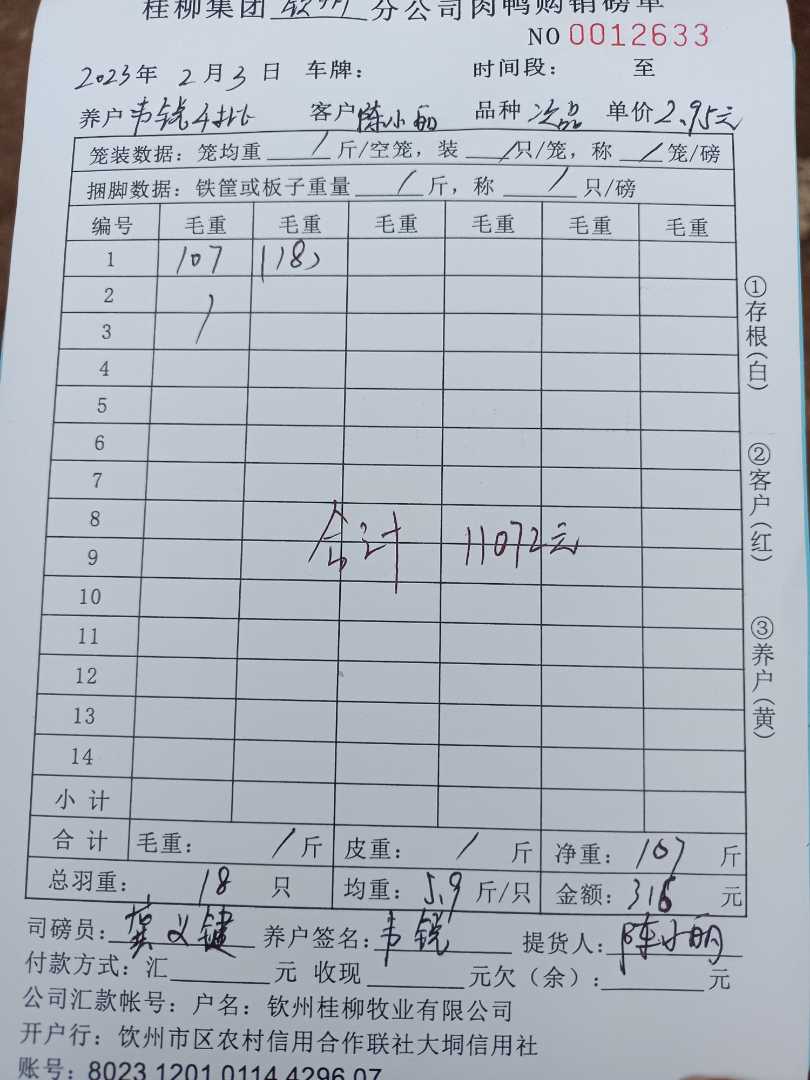 桂柳集团 钦州 分公司肉鸭购销磅单
NO 0012633
2023年 2月3日 车牌： 时间段： 至
养户 韦锐 客户 陈小丽 品种 次品 单价 2.95元
笼装数据：笼均重 / 斤/空笼，装 / 只/笼，称 / 笼/磅
捆脚数据：铁筐或板子重量 / 斤，称 / 只/磅
编号 毛重 毛重 毛重 毛重 毛重 毛重
1 107 (18)
2
3
4
5
6
7
8 合计 11072元
9
10
11
12
13
14
小计
合计 毛重： / 斤 皮重： / 斤 净重：107 斤
总羽重： 18 只 均重：5.9 斤/只 金额：316 元
司磅员： 义键 养户签名：韦锐 提货人：陈小丽
付款方式：汇 元 收现 元欠（余）： 元
公司汇款帐号：户名：钦州桂柳牧业有限公司
开户行：饮州市区农村信用合作联社大垌信用社
账号：8023 1201 0114 4296 07
①存根（白）
②客户（红）
③养户（黄）